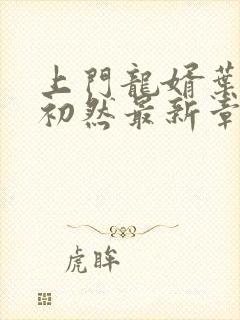 上門龍婿葉
初然最新章
虎眸